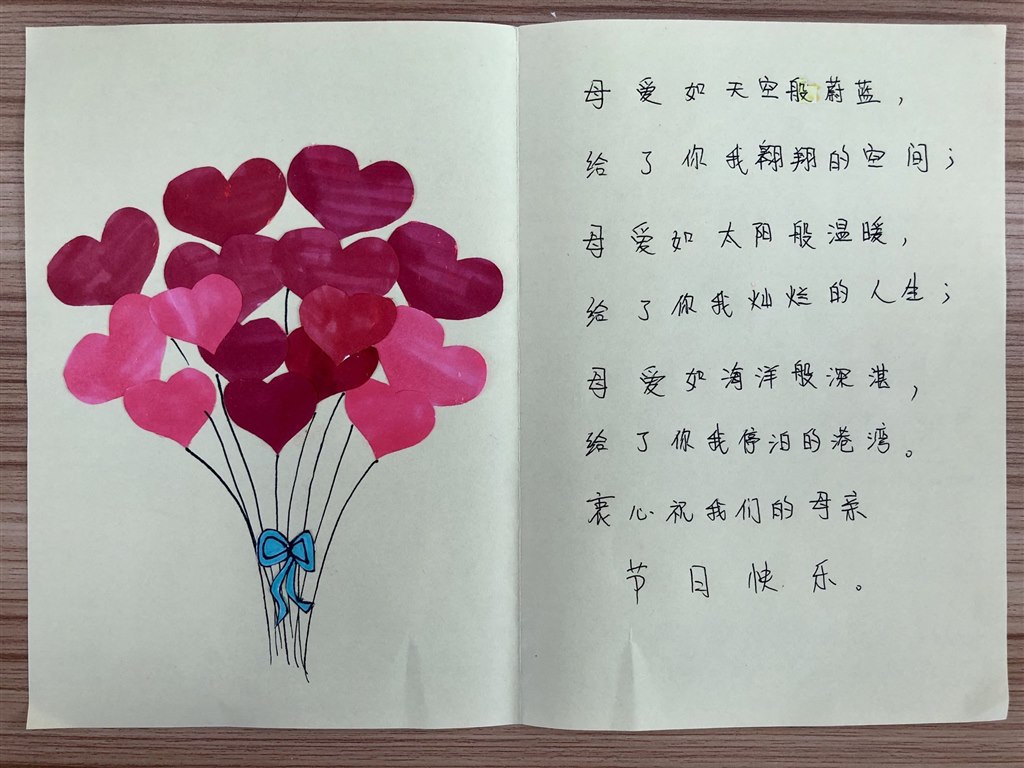 母爱如天空般蔚蓝，
给了你我翱翔的空间；
母爱如太阳般温暖，
给了你我灿烂的人生；
母爱如海洋般深湛，
给了你我停泊的港湾。
衷心祝我们的母亲
节日快乐。